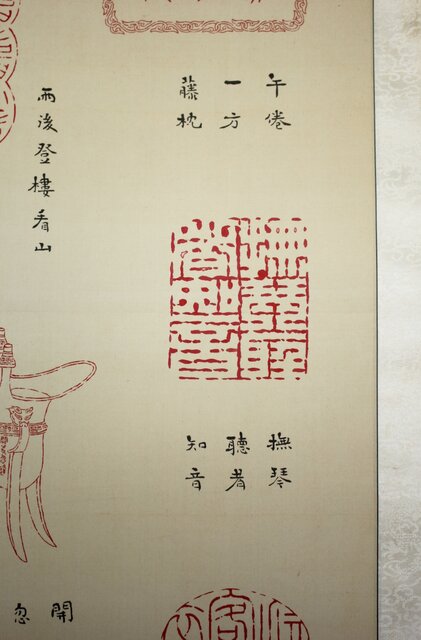 午倦
一方
藤枕
雨後登樓看山
撫琴
聽者
知音
開
忽